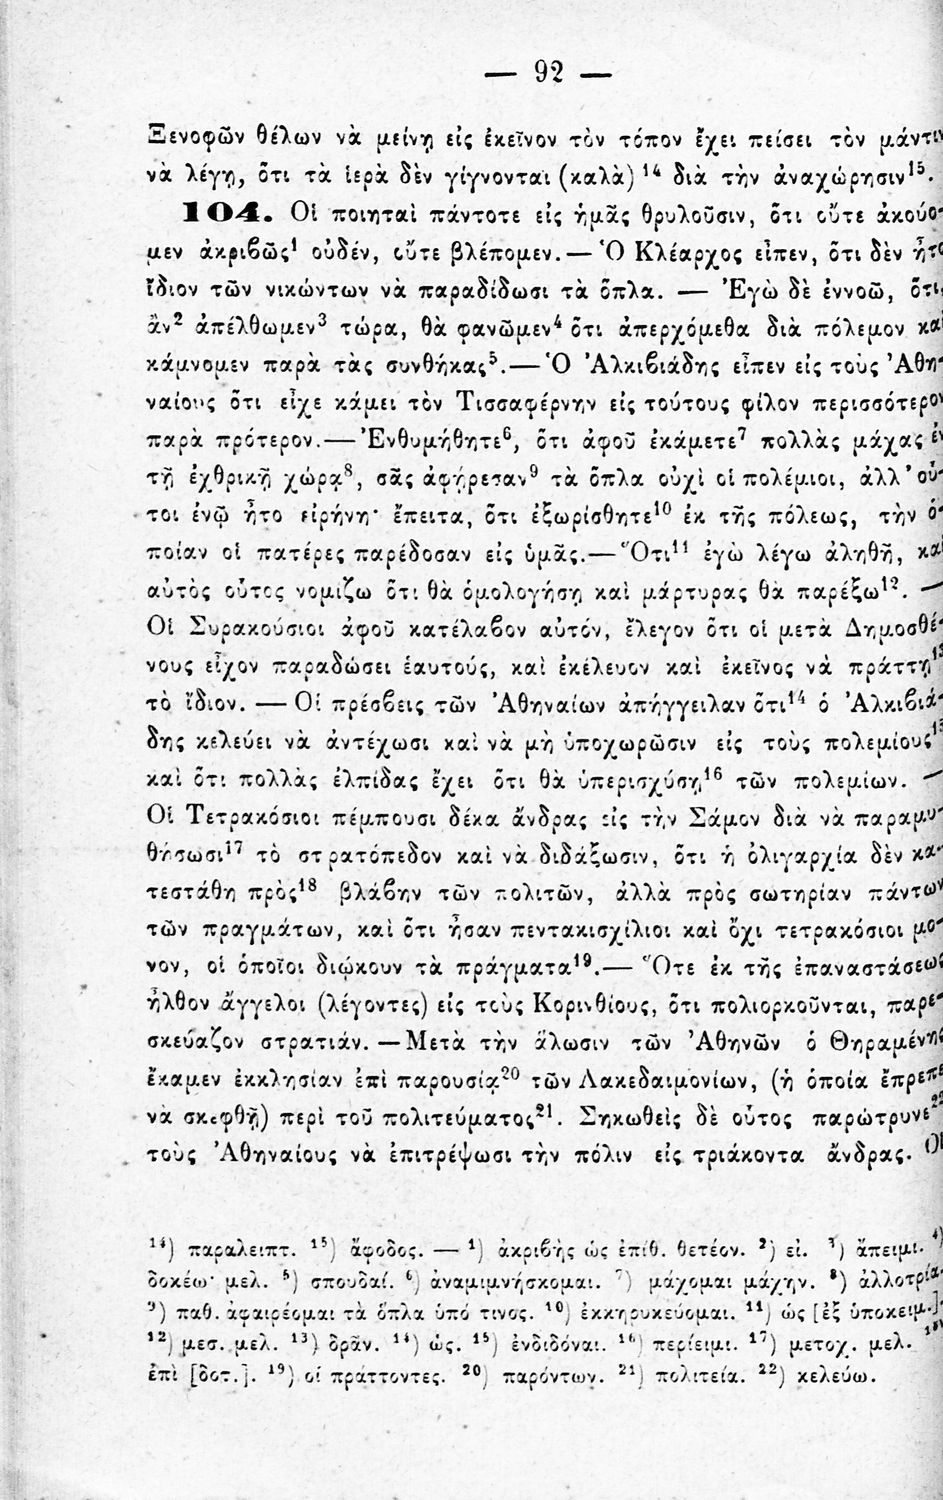 — 92 —
Ξενοφῶν θέλων νὰ μείνῃ εἰς ἐκεῖνον τὸν τόπον ἔχει πείσει τὸν μάντιν
νὰ λέγῃ, ὅτι τὰ ἱερὰ δὲν γίγνονται (καλὰ)¹⁴ διὰ τὴν ἀναχώρησιν¹⁵.
104. Οἱ ποιηταὶ πάντοτε εἰς ἡμᾶς θρυλοῦσιν, ὅτι οὔτε ἀκούο-
μεν ἀκριβῶς¹ οὐδέν, οὔτε βλέπομεν.— Ὁ Κλέαρχος εἶπεν, ὅτι δὲν ἦτο
ἴδιον τῶν νικώντων νὰ παραδίδωσι τὰ ὅπλα. — Ἐγὼ δὲ ἐννοῶ, ὅτι,
ἂν² ἀπέλθωμεν³ τώρα, θὰ φανῶμεν⁴ ὅτι ἀπερχόμεθα διὰ πόλεμον καὶ
κάμνομεν παρὰ τὰς συνθήκας⁵.— Ὁ Ἀλκιβιάδης εἶπεν εἰς τοὺς Ἀθη-
ναίους ὅτι εἶχε κάμει τὸν Τισσαφέρνην εἰς τούτους φίλον περισσότερον
παρὰ πρότερον.— Ἐνθυμήθητε⁶, ὅτι ἀφοῦ ἐκάμετε⁷ πολλὰς μάχας ἐν
τῇ ἐχθρικῇ χώρᾳ⁸, σᾶς ἀφῄρεσαν⁹ τὰ ὅπλα οὐχὶ οἱ πολέμιοι, ἀλλ' οὗ-
τοι ἐνῷ ἦτο εἰρήνη· ἔπειτα, ὅτι ἐξωρίσθητε¹⁰ ἐκ τῆς πόλεως, τὴν ὁ-
ποίαν οἱ πατέρες παρέδοσαν εἰς ὑμᾶς.— Ὅτι¹¹ ἐγὼ λέγω ἀληθῆ, καὶ
αὐτὸς οὗτος νομίζω ὅτι θὰ ὁμολογήσῃ καὶ μάρτυρας θὰ παρέξω¹². —
Οἱ Συρακούσιοι ἀφοῦ κατέλαβον αὐτόν, ἔλεγον ὅτι οἱ μετὰ Δημοσθέ-
νους εἶχον παραδώσει ἑαυτούς, καὶ ἐκέλευον καὶ ἐκεῖνος νὰ πράττῃ¹³
τὸ ἴδιον. — Οἱ πρέσβεις τῶν Ἀθηναίων ἀπήγγειλαν ὅτι¹⁴ ὁ Ἀλκιβιά-
δης κελεύει νὰ ἀντέχωσι καὶ νὰ μὴ ὑποχωρῶσιν εἰς τοὺς πολεμίους¹⁵
καὶ ὅτι πολλὰς ἐλπίδας ἔχει ὅτι θὰ ὑπερισχύσῃ¹⁶ τῶν πολεμίων. —
Οἱ Τετρακόσιοι πέμπουσι δέκα ἄνδρας εἰς τὴν Σάμον διὰ νὰ παραμυ-
θήσωσι¹⁷ τὸ στρατόπεδον καὶ νὰ διδάξωσιν, ὅτι ἡ ὀλιγαρχία δὲν κα-
τεστάθη πρὸς¹⁸ βλάβην τῶν πολιτῶν, ἀλλὰ πρὸς σωτηρίαν πάντων
τῶν πραγμάτων, καὶ ὅτι ἦσαν πεντακισχίλιοι καὶ ὄχι τετρακόσιοι μό-
νον, οἱ ὁποῖοι διῴκουν τὰ πράγματα¹⁹.— Ὅτε ἐκ τῆς ἐπαναστάσεως
ἦλθον ἄγγελοι (λέγοντες) εἰς τοὺς Κορινθίους, ὅτι πολιορκοῦνται, παρε-
σκεύαζον στρατιάν. — Μετὰ τὴν ἅλωσιν τῶν Ἀθηνῶν ὁ Θηραμένης
ἔκαμεν ἐκκλησίαν ἐπὶ παρουσίᾳ²⁰ τῶν Λακεδαιμονίων, (ἡ ὁποία ἔπρεπε
νὰ σκεφθῇ) περὶ τοῦ πολιτεύματος²¹. Σηκωθεὶς δὲ οὗτος παρώτρυνε²²
τοὺς Ἀθηναίους νὰ ἐπιτρέψωσι τὴν πόλιν εἰς τριάκοντα ἄνδρας. Οἱ
¹⁴) παραλειπτ. ¹⁵) ἄφοδος. — ¹) ἀκριβὴς ὡς ἐπίθ. θετέον. ²) εἰ. ³) ἄπειμι. ⁴)
δοκέω· μελ. ⁵) σπουδαί. ⁶) ἀναμιμνήσκομαι. ⁷) μάχομαι μάχην. ⁸) ἀλλοτρία.
⁹) παθ. ἀφαιρέομαι τὰ ὅπλα ὑπό τινος. ¹⁰) ἐκκηρυκεύομαι. ¹¹) ὡς [ἐξ ὑποκειμ.]
¹²) μεσ. μελ. ¹³) δρᾶν. ¹⁴) ὡς. ¹⁵) ἐνδιδόναι. ¹⁶) περίειμι. ¹⁷) μετοχ. μελ. ¹⁸)
ἐπὶ [δοτ.]. ¹⁹) οἱ πράττοντες. ²⁰) παρόντων. ²¹) πολιτεία. ²²) κελεύω.